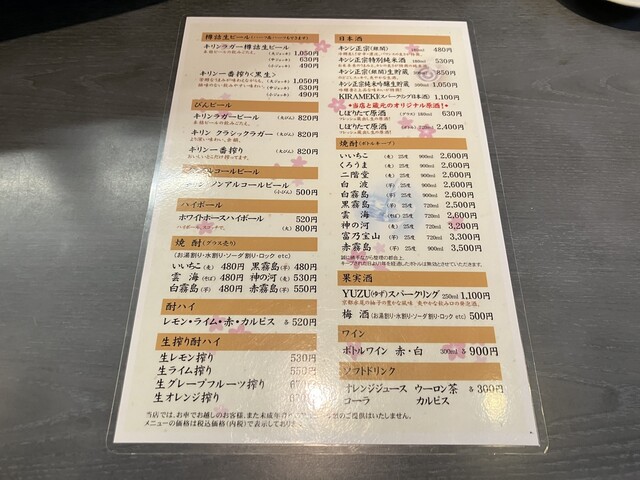 樽詰生ビール
キリンラガー樽詰生ビール
(大ジョッキ) 1,050円
(中ジョッキ) 630円
(小ジョッキ) 490円
キリン一番搾り〈黒生〉
(大ジョッキ) 1,050円
(中ジョッキ) 630円
(小ジョッキ) 490円
びんビール
キリンラガービール (大びん) 820円
キリン クラシックラガー (大びん) 820円
キリン一番搾り (大びん) 820円
おいしいとこだけ搾ってます。
ルコールビール
ノンアルコールビール
(小びん) 500円
ハイボール
ホワイトホースハイボール 520円
(大) 800円
焼 酎 (グラス売り)
(お湯割り・水割り・ソーダ割り・ロック etc)
いいちこ (麦) 480円 黒霧島 (芋) 480円
雲 海 (そば) 480円 神の河 (麦) 530円
白霧島 (芋) 480円 赤霧島 (芋) 550円
酎ハイ
レモン・ライム・赤・カルピス 各520円
生搾り酎ハイ
生レモン搾り 530円
生ライム搾り 550円
生グレープフルーツ搾り
生オレンジ搾り
当店では、お車でお越しのお客様、また未成年者
のご提供はいたしません。
メニューの価格は税込価格(内税)で表示しており
日本酒
キンシ正宗(銀閣) 180ml 480円
キンシ正宗特別純米酒 180ml 530円
キンシ正宗(銀閣)生貯蔵 850円
キンシ正宗純米吟醸生貯蔵 300ml 1,050円
KIRAMEKI(スパークリング日本酒) 1,100円
*当店と蔵元のオリジナル原酒!*
しぼりたて原酒 (グラス) 630円
しぼりたて原酒 2,400円
焼酎 (ボトルキープ)
いいちこ (麦) 25度 900ml 2,600円
くろうま (麦) 25度 900ml 2,600円
二階堂 (麦) 25度 900ml 2,600円
白 波 (芋) 25度 900ml 2,600円
白霧島 (芋) 25度 900ml 2,600円
黒霧島 (芋) 25度 720ml 2,500円
雲 海 (そば) 25度 900ml 2,600円
神の河 (麦) 25度 720ml 3,200円
富乃宝山 (芋) 25度 720ml 3,300円
赤霧島 (芋) 25度 900ml 3,500円
誠に勝手ながら整理の都合上、
キープされた日より3月を経過したボトルは無効とさせていただきます。
果実酒
YUZU(ゆず)スパークリング 250ml 1,100円
京都水尾の柚子の豊かな風味 爽やかな飲み口の発泡酒。
梅 酒 (お湯割り・水割り・ソーダ割り・ロック etc) 500円
ワイン
ボトルワイン 赤・白 300ml 各900円
ソフトドリンク
オレンジジュース ウーロン茶 各300円
コーラ カルピス